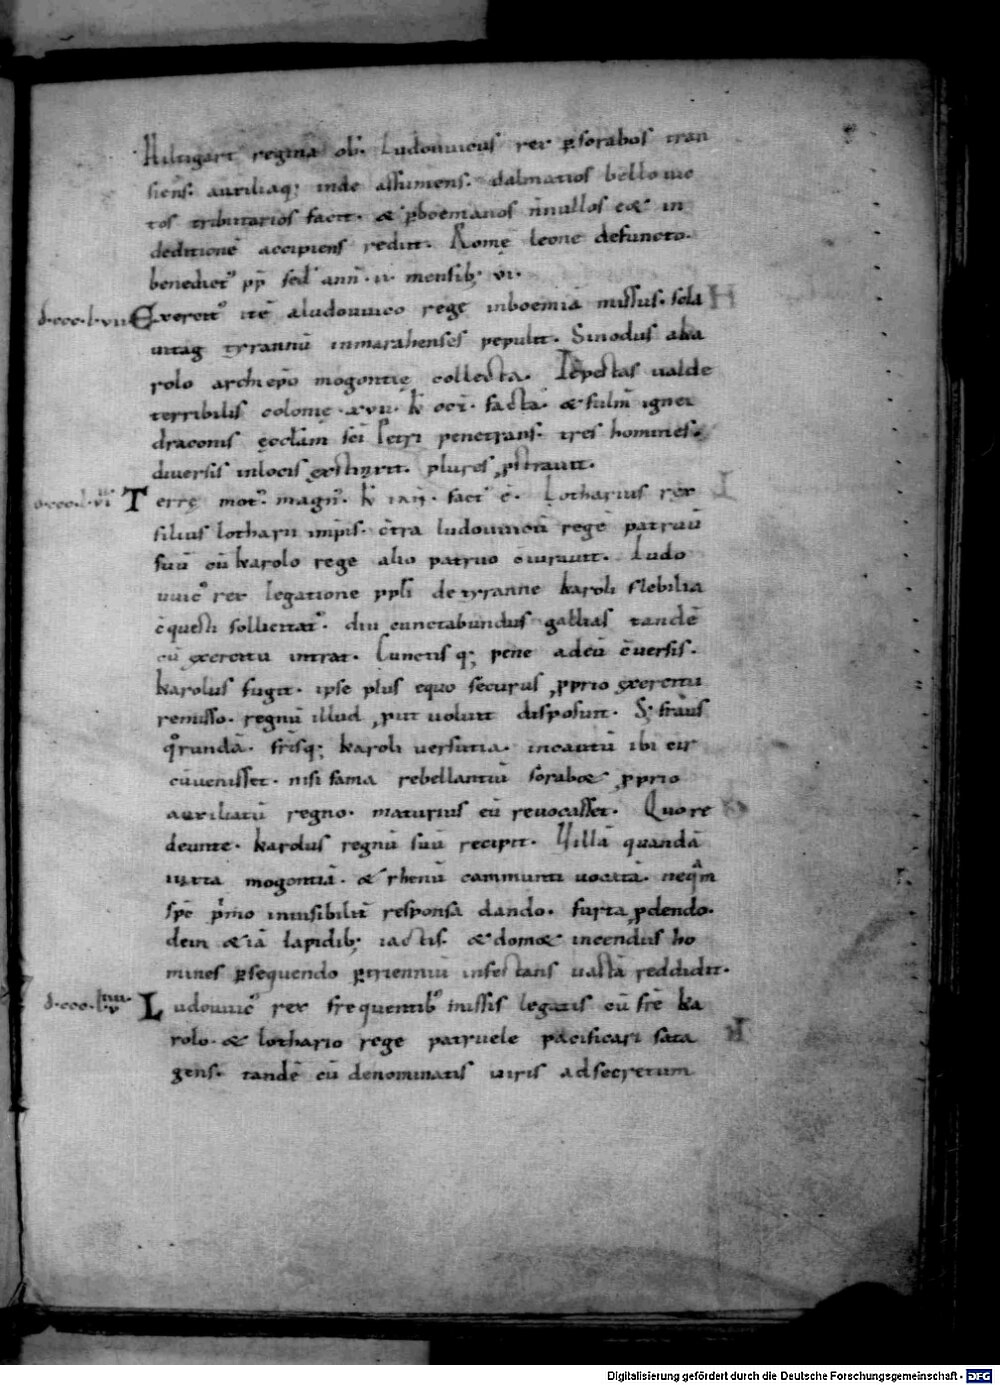 Hiltigart regina ob. Ludouuicus rex ꝑ sorabos tran
siens. auxiliaq; inde assumens. dalmatios bello uic
tos tributarios facit. & ꝑ boemanos nnullos eoꝝ in
deditionē accipiens rediit. Romę leone defuncto.
benedict᾿ pp̄ sed ann̄. ii. mensib; vi.
d.ccc.l.vii Exercit᾿ itē aludouuico rege inboemiā missus. scla
uitag tyrannū inmarahenses pepulit. Sinodus aka
rolo archiepo mogontię collecta. Tēpestas ualde
terribilis colonię .xvii. kł oct̄. facta. & fulm̄ ignei
draconis ęcclam sc̄i Petri penetrans. tres homines.
diuersis inlocis exstinxit. plures ꝓstrauit.
d.ccc.l.viii Terrę mot᾿ magn᾿. kł ian̄. fact᾿ ē. Lotharius rex
filius lotharii imp̄is. c̄tra ludouuicū regē patruū
suū cū karolo rege alio patruo c̄iurauit. Ludo
uuic᾿ rex legatione ppłi de tyranne karoli flebilia
c̄questi sollicitat᾿. diu cunctabundus gallias tandē
cū exercitu intrat. Cunctis q; pene adeū c̄uersis.
karolus fugit. ipse plus equo securus ꝓprio exercitu
remisso. regnū illud ꝓut uoluit disposuit. S; fraus
q᾿rundā. fr̄isq; karoli uersutia. incautū ibi eū
cūuenisset. nisi fama rebellantiū soraboꝝ ꝓprio
auxiliatū regno. maturius eū reuocasset. Quo re
deunte. karolus regnū suū recipit. Uillā quandā
iuxta mogontiā. & rhenū cammunti uocatā. nequā
spc p̄mo inuisibilit̄ responsa dando. furta ꝓdendo.
dein & iā lapidib; iactis. & domoꝝ incendiis ho
mines ꝑsequendo ꝑ trienniū infestans uastā reddidit.
d.ccc.lviiii Ludouuic᾿ rex frequentib᾿ missis legatis cū fr̄e ka
rolo. & lothario rege patruele pacificari sata
gens. tandē cū denominatis uiris ad secretum
Digitalisierung gefördert durch die Deutsche Forschungsgemeinschaft - DFG